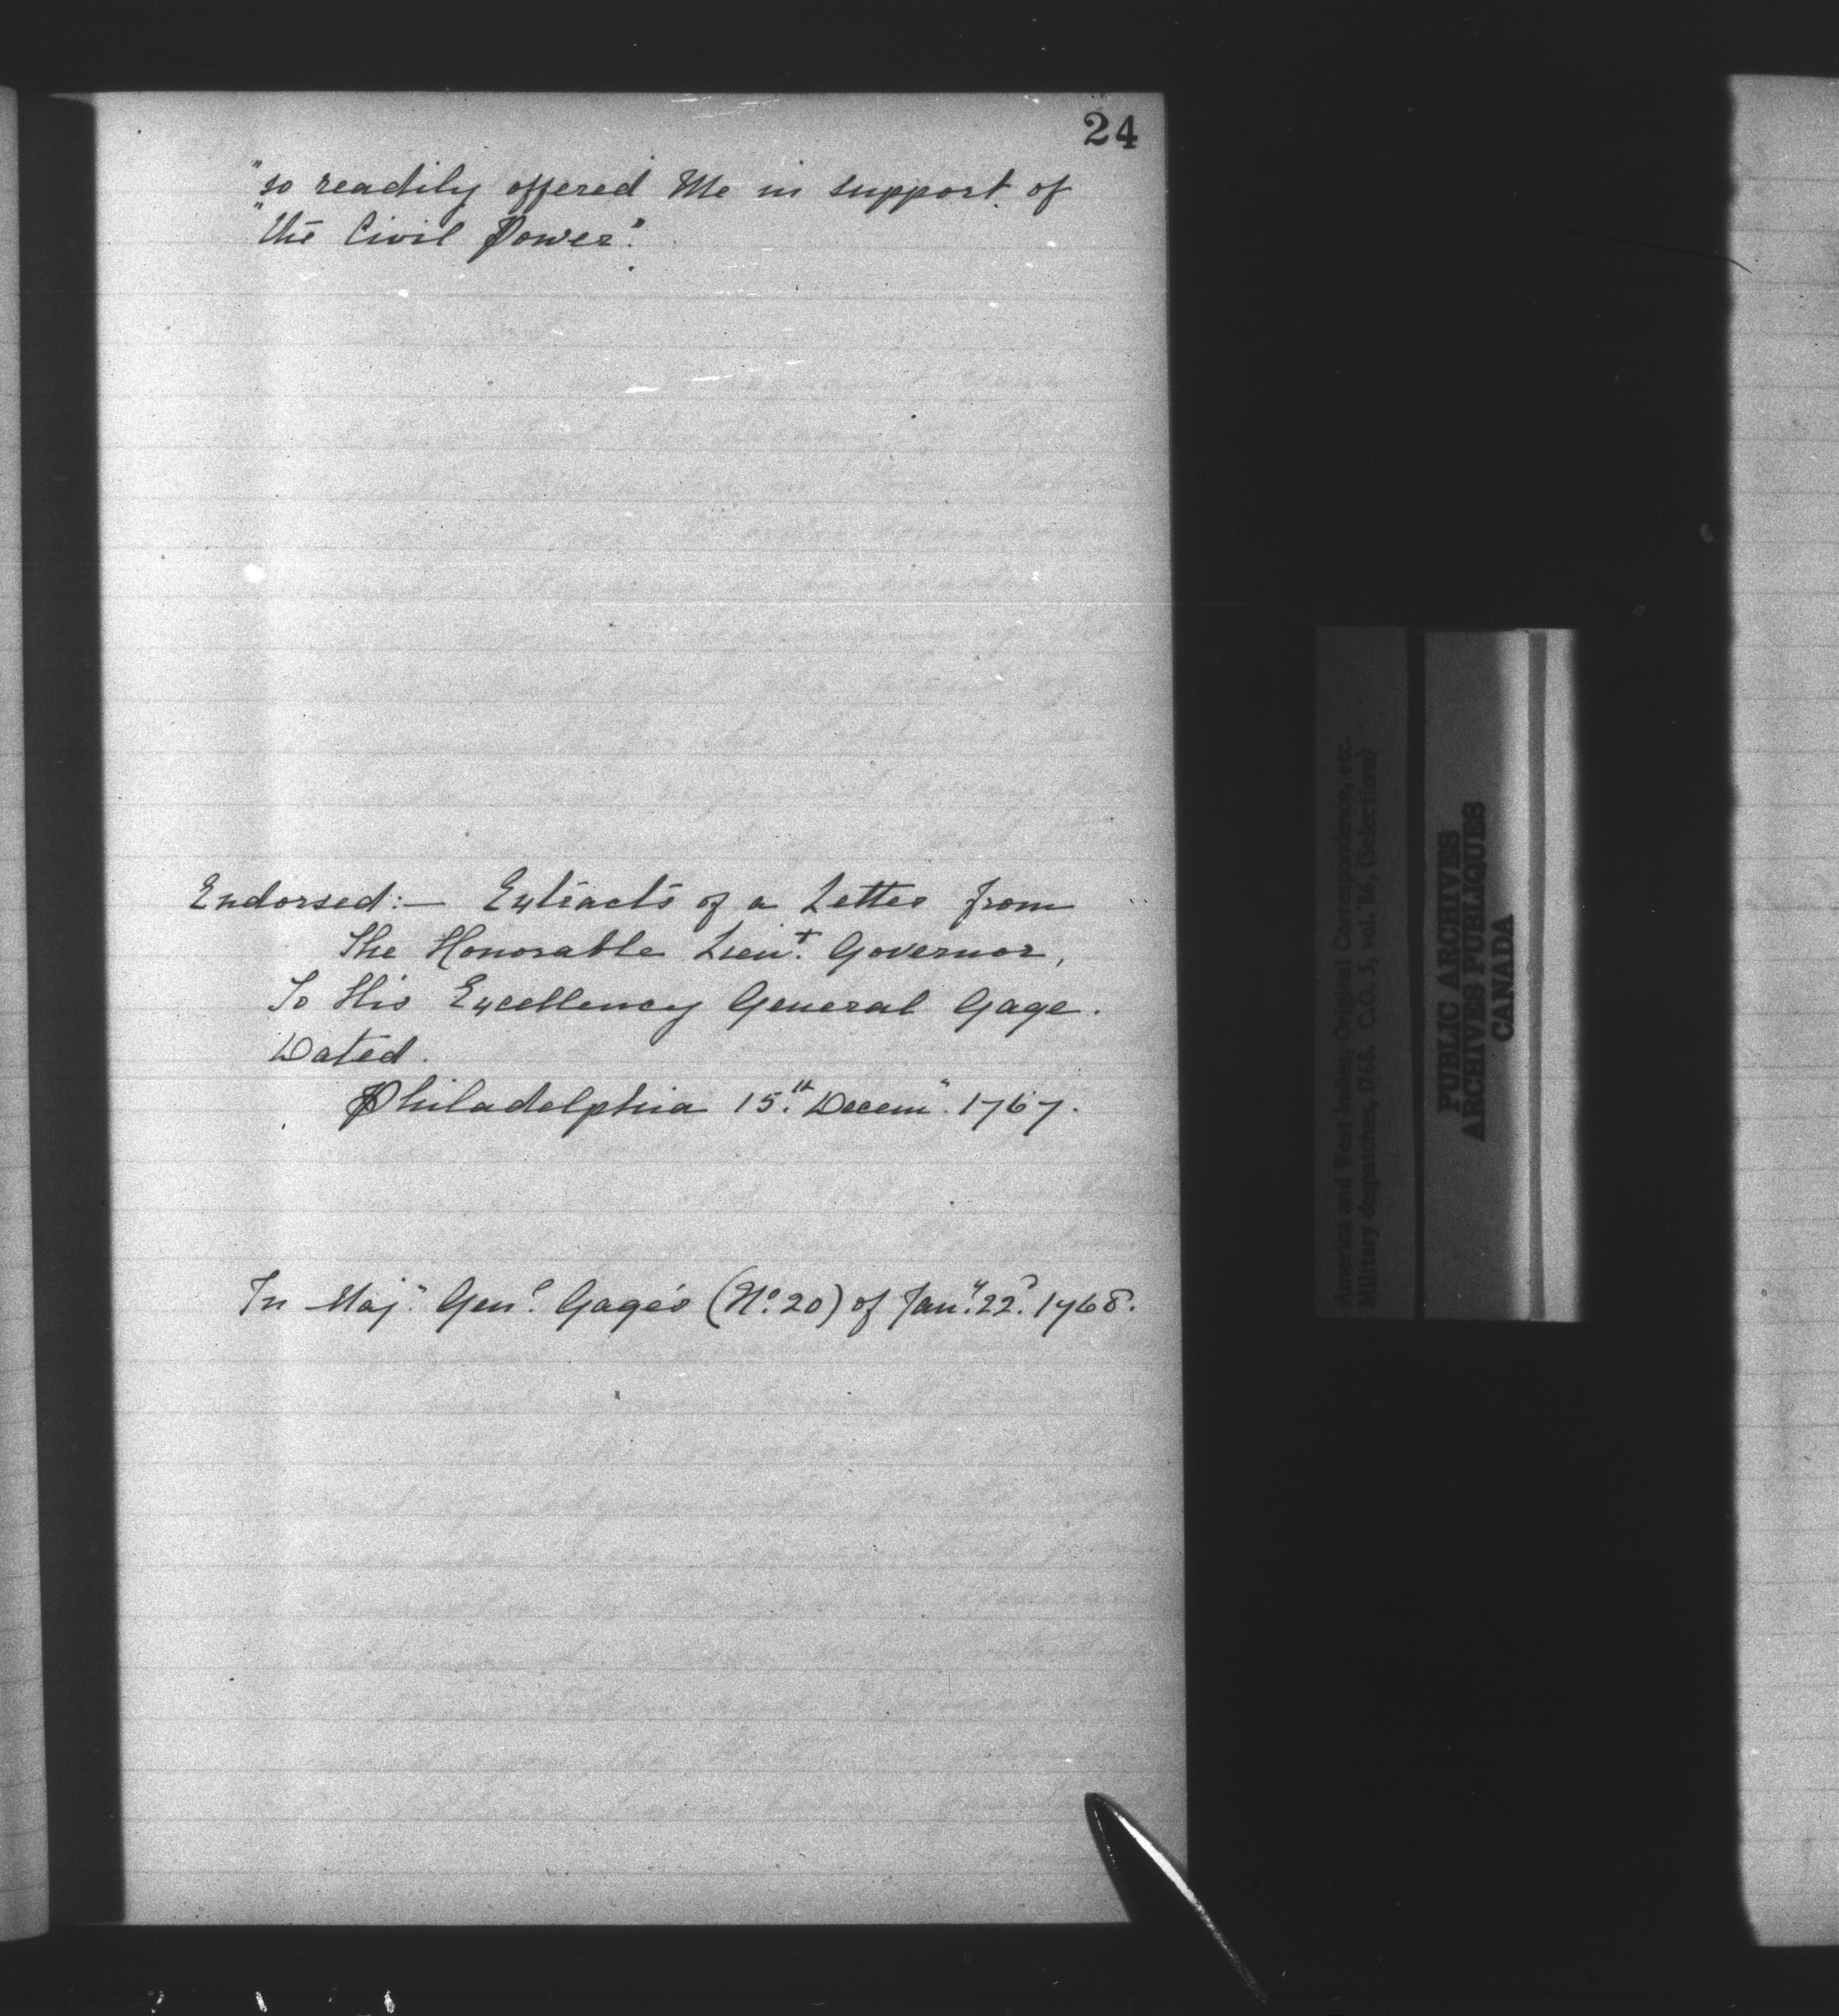 24
"so readily offered Me in support of
"the Civil Power".
Endorsed:— Extracts of a Letter from
The Honorable Lieut. Governor,
To His Excellency General Gage.
Dated.
Philadelphia 15.th Decem.r 1767.
In Maj.r Gen.l Gage's (No. 20) of Jan.y 22.d 1768.
America and West Indies, Original Correspondence, etc.
Military despatches, 1768. C.O. 5, vol. 86, (Selections)
PUBLIC ARCHIVES
ARCHIVES PUBLIQUES
CANADA